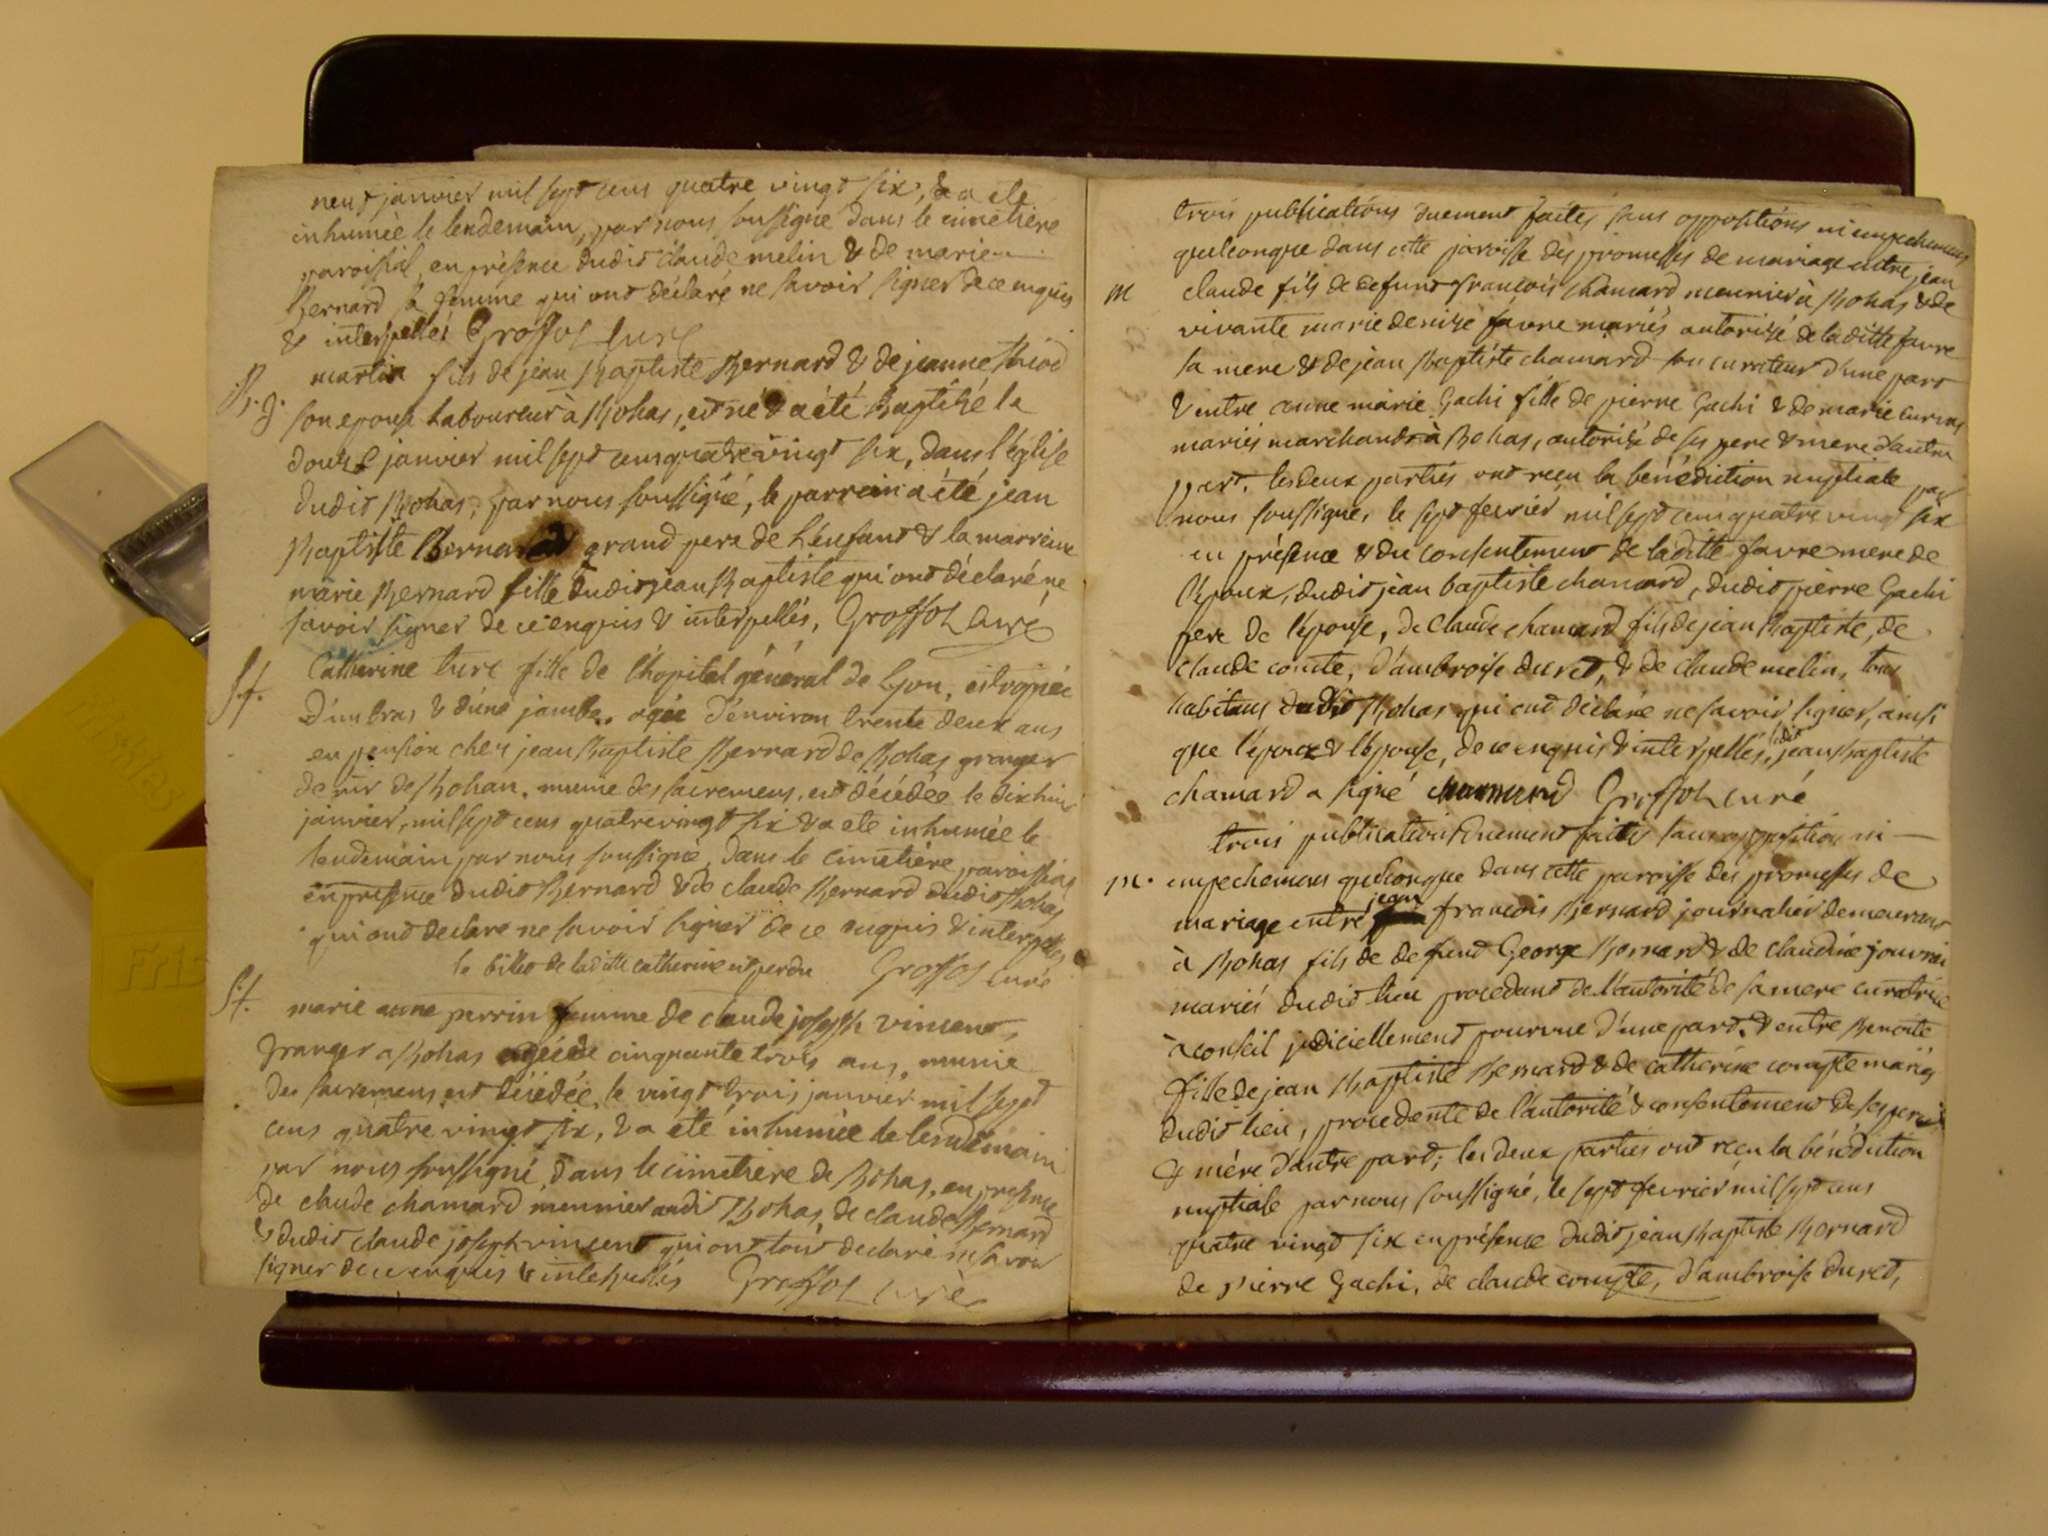 neuf janvier mil sept cens quatre vingt six, & a eté
inhumée le lendemain, par nous soussigné dans le cimetière
paroissial, en présence dudit claude melin & de marie
Bernard sa femme qui ont déclaré ne savoir signer de ce enquis
& interpellés Groffoz curé
B. g. martin fils de jean Baptiste Bernard & de jeanne
son epouse Laboureur à Bohas, est né & a été Baptisé le
douze janvier mil sept cens quatre vingt six, dans l'église
dudit Bohas, par nous soussigné, le parrein a été jean
Baptiste Bernard grand pere de l'enfant & la marreine
marie Bernard fille dudit jean Baptiste qui ont déclaré ne
savoir signer de ce enquis & interpellés, Groffoz curé
S.f. Catherine ture fille de l'hopital général de Lyon, estropiée
d'un bras & d'une jambe, agée d'environ trente deux ans
en pension chez jean Baptiste Bernard de Bohas granger
de mr de Bohan, munie des sacremens, est décédée le dix huit
janvier, mil sept cens quatre vingt six & a ete inhumée le
lendemain par nous soussigné, dans le cimetière paroissial
en presence dudit Bernard & de claude Bernard dudit Bohas
qui ont declaré ne savoir signer de ce enquis & interpellés
le billet de laditte catherine est perdu Groffoz curé
S.f. marie anne perrin femme de claude joseph vincent,
granger a Bohas agée de cinquante trois ans, munie
des sacremens est décédée, le vingt trois janvier mil sept
cens quatre vingt six, & a été inhumée le lendemain
par nous soussigné, dans le cimetière de Bohas, en presence
de claude chamard meunier audit Bohas, de claude Bernard
& dudit claude joseph vincent qui ont tous declaré ne savoir
signer de ce enquis & interpellés Groffoz curé
trois publications duement faites sans oppositions ni empechemens
quelconque dans cette paroisse des promesses de mariage entre jean
m claude fils de defunt françois chamard meunier à Bohas & de
vivante marie denize favre mariés autorisé de laditte favre
sa mere & de jean Baptiste chamard son curateur d'une part
& entre anne marie Gachi fille de pierre Gachi & de marie
mariés marchands à Bohas, autorisé de ses pere & mere d'autre
part. les deux parties ont reçu la bénédiction nuptiale par
nous soussigné, le sept fevrier mil sept cens quatre vingt six
en présence & du consentement de laditte favre mere de
l'epoux, dudit jean baptiste chamard, dudit pierre Gachi
pere de l'epouse, de claude chamard fils de jean Baptiste, de
claude comte, d'ambroise duret, & de claude melin, tous
habitans dudit Bohas qui ont déclaré ne savoir signer, ainsi
que l'epoux & l'epouse, de ce enquis & interpellés, ledit jean Baptiste
chamard a signé chamard Groffoz curé
trois publications duement faites sans opposition ni
m. empechemens quelconque dans cette paroisse des promesses de
mariage entre jean françois Bernard journalier demeurant
à Bohas fils de defunt George Bernard & de claudine
mariés dudit lieu procedant de l'autorité de sa mere curatrice
à conseil judiciellement pourvue d'une part, & entre Benoite
fille de jean Baptiste Bernard & de catherine compte mariés
dudit lieu, procedente de l'autorité & consentement de ses pere
& mère d'autre part; les deux parties ont reçu la bénédiction
nuptiale par nous soussigné, le sept fevrier mil sept cens
quatre vingt six en présence dudit jean Baptiste Bernard
de pierre Gachi, de claude compte, d'ambroise duret,